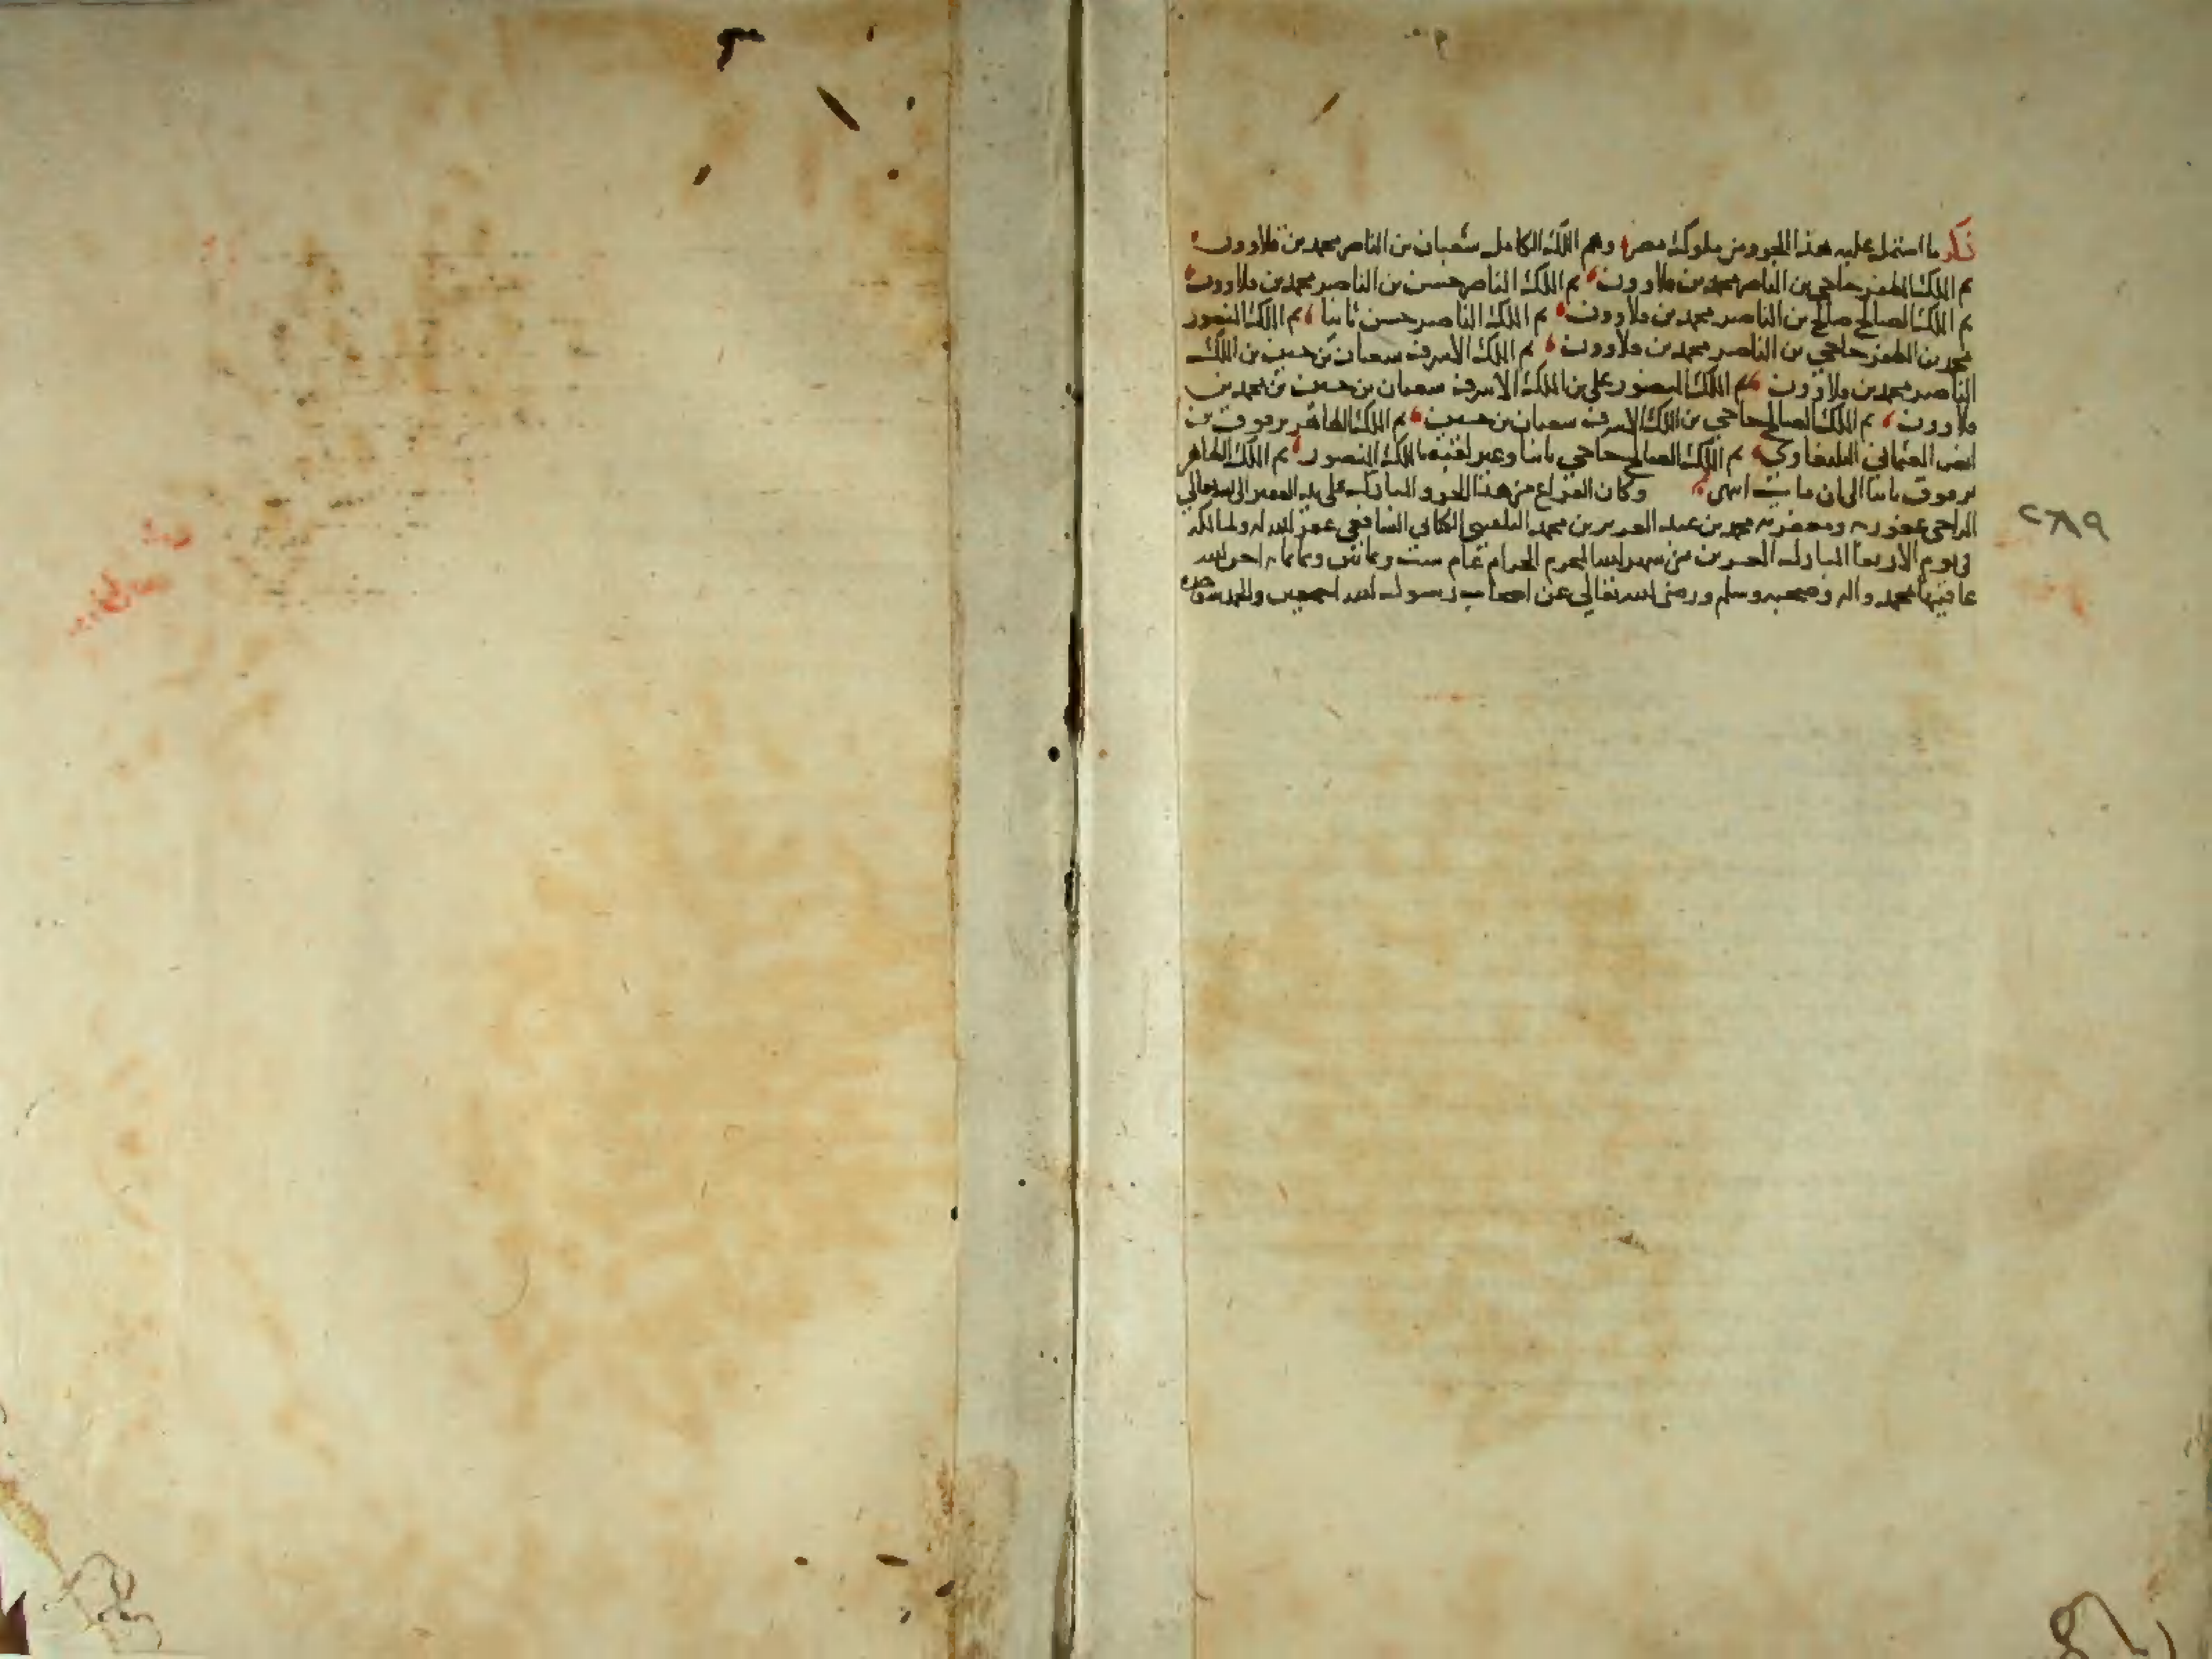 ذكر ما اشتمل عليه هذا الجزو من ملوك مصر، وهم الملك الكامل شعبان بن الناصر محمد بن قلاوون،
ثم الملك المظفر حاجي بن الناصر محمد بن قلاوون، ثم الملك الناصر حسن بن الناصر محمد بن قلاوون،
ثم الملك الصالح صالح بن الناصر محمد بن قلاوون، ثم الملك الناصر حسن ثانيا، ثم الملك المنصور
محمد بن المظفر حاجي بن الناصر محمد بن قلاوون، ثم الملك الاشرف شعبان بن حسين بن الملك
الناصر محمد بن قلاوون، ثم الملك المنصور علي بن الملك الاشرف شعبان بن حسين بن محمد بن
قلاوون، ثم الملك الصالح حاجي بن الملك الاشرف شعبان بن حسين، ثم الملك الظاهر برقوق بن
انص العثماني اليلبغاوي، ثم الملك الصالح حاجي ثانيا وغير لقبه بالملك المنصور، ثم الملك الظاهر
برقوق ثانيا الى ان مات انتهى، وكان الفراغ من هذا الجزو المبارك على يد الفقير الى الله تعالى
الراجي عفو ربه ومغفرته محمد بن عبد العزيز بن محمد الكناني الشافعي غفر الله له ولمالكه
في يوم الاربعا المبارك العشرين من شهر الله المحرم الحرام عام ست وثمانين وثمانمائه احسن الله
عاقبتها بمحمد واله وصحبه وسلم ورضى الله تعالى عن اصحاب رسول الله اجمعين والحمد لله وحده
٢٨٩